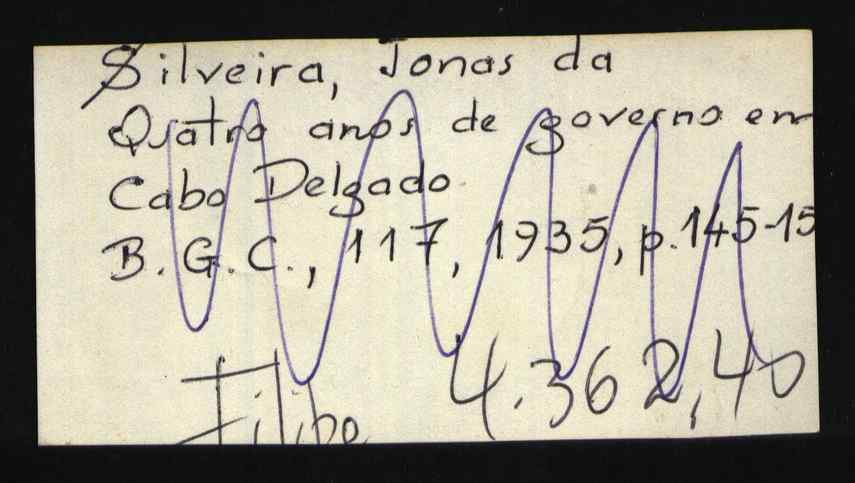 Silveira, Jonas da
Quatro anos de governo em
Cabo Delgado
B.G.C., 117, 1935, p.145-15
4.362,40